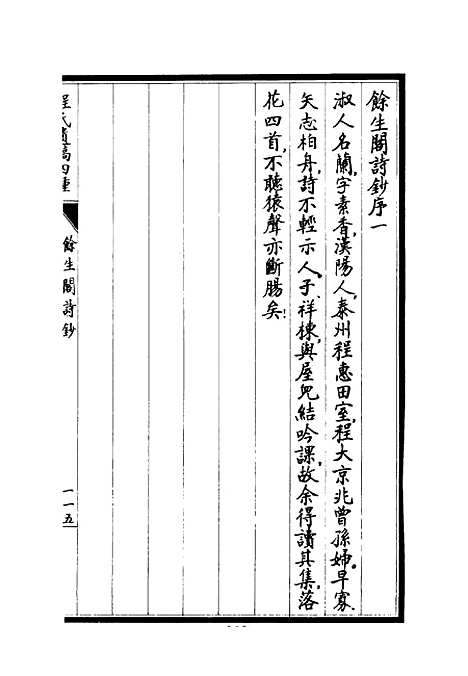 餘生閣詩鈔序一
淑人名蘭,字素香,漢陽人,泰州程惠田室,程大京兆曾孫婦。早寡.
矢志柏舟,詩不輕示人。子祥棟,與屋兒結吟課,故余得讀其集,落
花四首,不聽猿聲亦斷腸矣!
程氏遺稿四種
餘生閣詩鈔
一一五